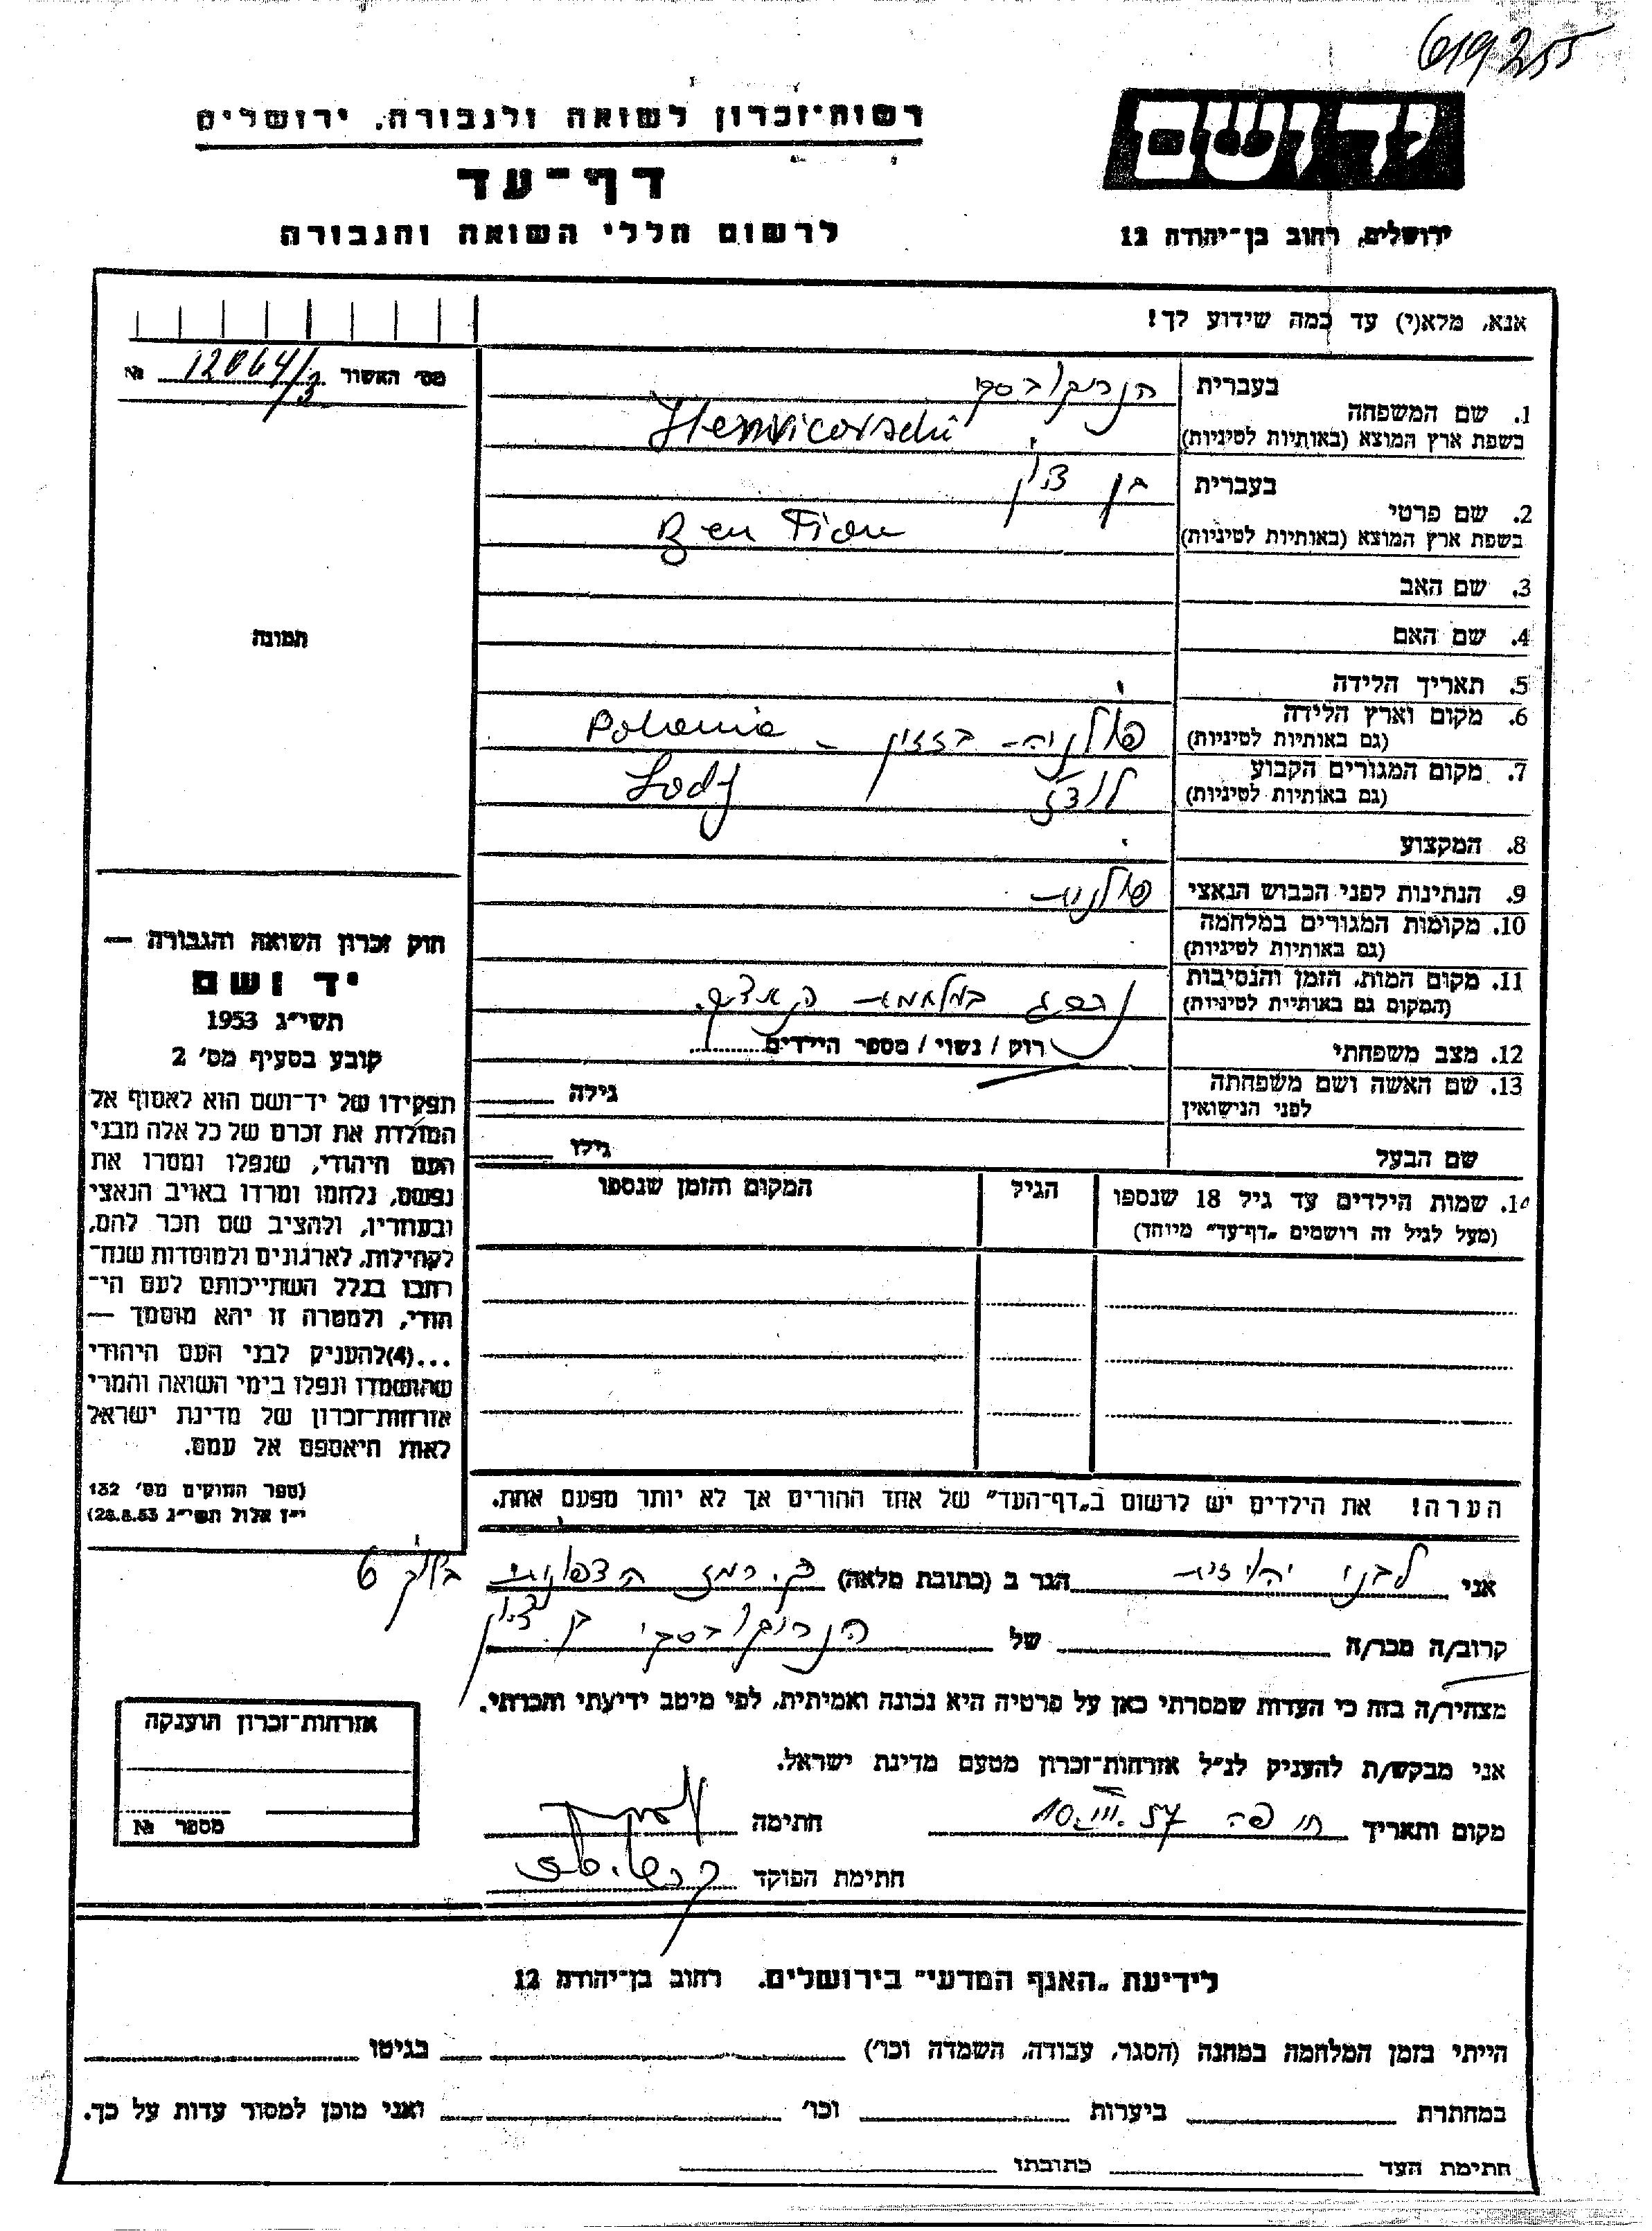 619255
רשות־זכרון לשואה ולגבורה, ירושלים
דף־עד
לרשום חללי השואה והגבורה
יד ושם
ירושלים, רחוב בן־יהודה 12
אנא, מלא(י) עד כמה שידוע לך!
מס׳ האשור 12064/3 №
תמונה
1. שם המשפחה
בעברית הנריקובסקי
בשפת ארץ המוצא (באותיות לטיניות) Henricovschi
2. שם פרטי
בעברית בן ציון
בשפת ארץ המוצא (באותיות לטיניות) Ben Tion
3. שם האב
4. שם האם
5. תאריך הלידה
6. מקום וארץ הלידה
(גם באותיות לטיניות) פולניה - ברזזין - Polonia
7. מקום המגורים הקבוע
(גם באותיות לטיניות) לודז׳ Lodj
8. המקצוע
9. הנתינות לפני הכבוש הנאצי פולנית
10. מקומות המגורים במלחמה
(גם באותיות לטיניות)
11. מקום המות, הזמן והנסיבות
(המקום גם באותיות לטיניות) נהרג במלחמת
12. מצב משפחתי רווק / נשוי / מספר הילדים
13. שם האשה ושם משפחתה
לפני הנישואין
גילה
שם הבעל גילו
שמות הילדים עד גיל 18 שנספו
(מעל לגיל זה רושמים „דף־עד״ מיוחד)
הגיל
המקום והזמן שנספו
חוק זכרון השואה והגבורה —
יד ושם
תשי״ג 1953
קובע בסעיף מס׳ 2
תפקידו של יד־ושם הוא לאסוף אל
המולדת את זכרם של כל אלה מבני
העם היהודי, שנפלו ומסרו את
נפשם, נלחמו ומרדו באויב הנאצי
ובעוזריו, ולהציב שם וזכר להם,
לקהילות, לארגונים ולמוסדות שנח־
רבו בגלל השתייכותם לעם הי־
הודי, ולמטרה זו יהא מוסמך —
...(4) להעניק לבני העם היהודי
שהושמדו ונפלו בימי השואה והמרי
אזרחות־זכרון של מדינת ישראל
לאות היאספם אל עמם.
(ספר החוקים מס׳ 132
י״ז אלול תשי״ג 28.8.53)
הערה! את הילדים יש לרשום ב„דף־העד״ של אחד ההורים אך לא יותר מפעם אחת.
אני לבני יהודית הגר ב (כתובת מלאה) ק. רמז הצפונית בלוק 6
קרוב/ה מכר/ה של הנריקובסקי בן ציון
מצהיר/ה בזה כי העדות שמסרתי כאן על פרטיה היא נכונה ואמיתית, לפי מיטב ידיעתי והכרתי.
אני מבקש/ת להעניק לנ״ל אזרחות־זכרון מטעם מדינת ישראל.
מקום ותאריך חיפה 10.III.57 חתימה
חתימת הפוקד
אזרחות־זכרון הוענקה
מספר №
לידיעת „האגף המדעי״ בירושלים. רחוב בן־יהודה 12
הייתי בזמן המלחמה במחנה (הסגר, עבודה, השמדה וכו׳) בגיטו
במחתרת ביערות וכו׳ ואני מוכן למסור עדות על כך.
חתימת העד כתובתו